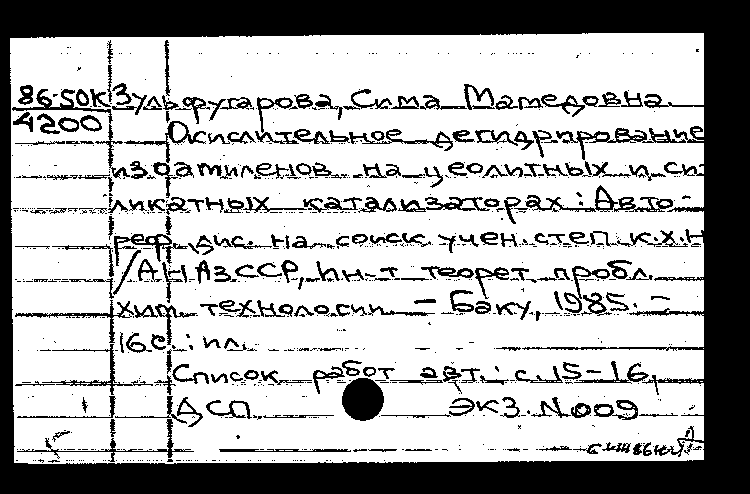 86-50К Зульфугарова, Сима Мамедовна.
4200
Окислительное дегидрирование
изоамиленов на цеолитных и си-
ликатных катализаторах : Авто-
реф. дис. на соиск. учен. степ. к.х.н
/АН АзССР, Ин-т теорет. пробл.
хим. технологии. – Баку, 1985. –
16с. : ил.
Список работ авт.: с. 15-16.
ДСП. Экз. N009